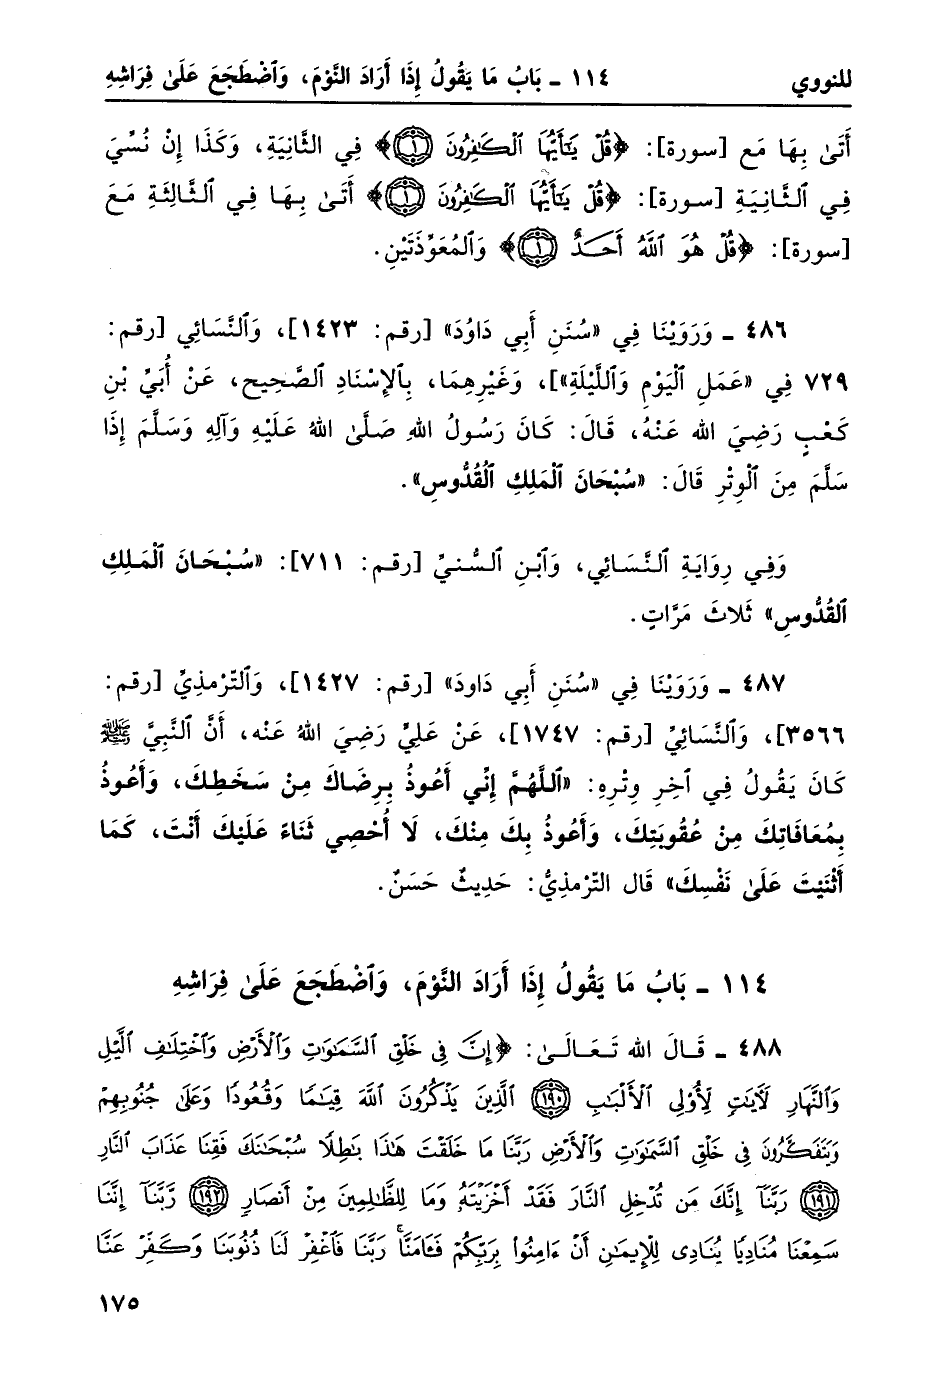 للنووي ١١٤ ـ بَابُ مَا يَقُولُ إِذَا أَرَادَ النَّوْمَ، وَٱضْطَجَعَ عَلَىٰ فِرَاشِهِ
أَتَىٰ بِهَا مَع [سورة]: ﴿قُلْ يَٰٓأَيُّهَا ٱلْكَٰفِرُونَ ۝١﴾ فِي الثَّانِيَةِ، وَكَذَا إِنْ نُسِّيَ
فِي ٱلثَّانِيَةِ [سورة]: ﴿قُلْ يَٰٓأَيُّهَا ٱلْكَٰفِرُونَ ۝١﴾ أَتَىٰ بِهَا فِي ٱلثَّالِثَةِ مَعَ
[سورة]: ﴿قُلْ هُوَ ٱللَّهُ أَحَدٌ ۝١﴾ وَٱلمُعَوِّذَتَيْنِ.
٤٨٦ ـ وَرَوَيْنَا فِي «سُنَنِ أَبِي دَاوُدَ» [رقم: ١٤٢٣]، وَٱلنَّسَائِي [رقم:
٧٢٩ فِي «عَمَلِ ٱلْيَوْمِ وَٱللَّيْلَةِ»]، وَغَيْرِهِمَا، بِٱلإِسْنَادِ ٱلصَّحِيحِ، عَنْ أُبَيِّ بْنِ
كَعْبٍ رَضِيَ الله عَنْهُ، قَالَ: كَانَ رَسُولُ اللهِ صَلَّىٰ اللهُ عَلَيْهِ وَآلِهِ وَسَلَّمَ إِذَا
سَلَّمَ مِنَ ٱلْوِتْرِ قَالَ: «سُبْحَانَ ٱلْمَلِكِ ٱلْقُدُّوسِ».
وَفِي رِوَايَةِ ٱلنَّسَائِي، وَٱبْنِ ٱلسُّنيِّ [رقم: ٧١١]: «سُبْحَانَ ٱلْمَلِكِ
ٱلقُدُّوسِ» ثَلاثَ مَرَّاتٍ.
٤٨٧ ـ وَرَوَيْنَا فِي «سُنَنِ أَبِي دَاودَ» [رقم: ١٤٢٧]، وَٱلتِّرْمذِيِّ [رقم:
٣٥٦٦]، وَٱلنَّسَائِيِّ [رقم: ١٧٤٧]، عَنْ عَلِيِّ رَضِيَ اللهُ عَنْه، أَنَّ ٱلنَّبِيَّ ﷺ
كَانَ يَقُولُ فِي آخِرِ وِتْرِهِ: «ٱللَّهُمَّ إِنِّي أَعُوذُ بِرِضَاكَ مِنْ سَخَطِكَ، وَأَعُوذُ
بِمُعَافَاتِكَ مِنْ عُقُوبَتِكَ، وَأَعُوذُ بِكَ مِنْكَ، لَا أُحْصِي ثَنَاءً عَلَيْكَ أَنْتَ، كَمَا
أَثْنَيْتَ عَلَىٰ نَفْسِكَ» قَال التِّرْمذِيُّ: حَدِيثٌ حَسَنٌ.
١١٤ ـ بَابُ مَا يَقُولُ إِذَا أَرَادَ النَّوْمَ، وَٱضْطَجَعَ عَلَىٰ فِرَاشِهِ
٤٨٨ ـ قَالَ الله تَعَالَىٰ: ﴿إِنَّ فِي خَلْقِ ٱلسَّمَٰوَٰتِ وَٱلْأَرْضِ وَٱخْتِلَٰفِ ٱلَّيْلِ
وَٱلنَّهَارِ لَأٓيَٰتٍ لِّأُوْلِى ٱلْأَلْبَٰبِ ۝١٩٠ ٱلَّذِينَ يَذْكُرُونَ ٱللَّهَ قِيَٰمًا وَقُعُودًا وَعَلَىٰ جُنُوبِهِمْ
وَيَتَفَكَّرُونَ فِى خَلْقِ ٱلسَّمَٰوَٰتِ وَٱلْأَرْضِ رَبَّنَا مَا خَلَقْتَ هَٰذَا بَٰطِلًا سُبْحَٰنَكَ فَقِنَا عَذَابَ ٱلنَّارِ
۝١٩١ رَبَّنَآ إِنَّكَ مَن تُدْخِلِ ٱلنَّارَ فَقَدْ أَخْزَيْتَهُۥ وَمَا لِلظَّٰلِمِينَ مِنْ أَنصَارٍ ۝١٩٢ رَّبَّنَآ إِنَّنَا
سَمِعْنَا مُنَادِيًا يُنَادِى لِلْإِيمَٰنِ أَنْ ءَامِنُوا۟ بِرَبِّكُمْ فَـَٔامَنَّا ۚ رَبَّنَا فَٱغْفِرْ لَنَا ذُنُوبَنَا وَكَفِّرْ عَنَّا
١٧٥